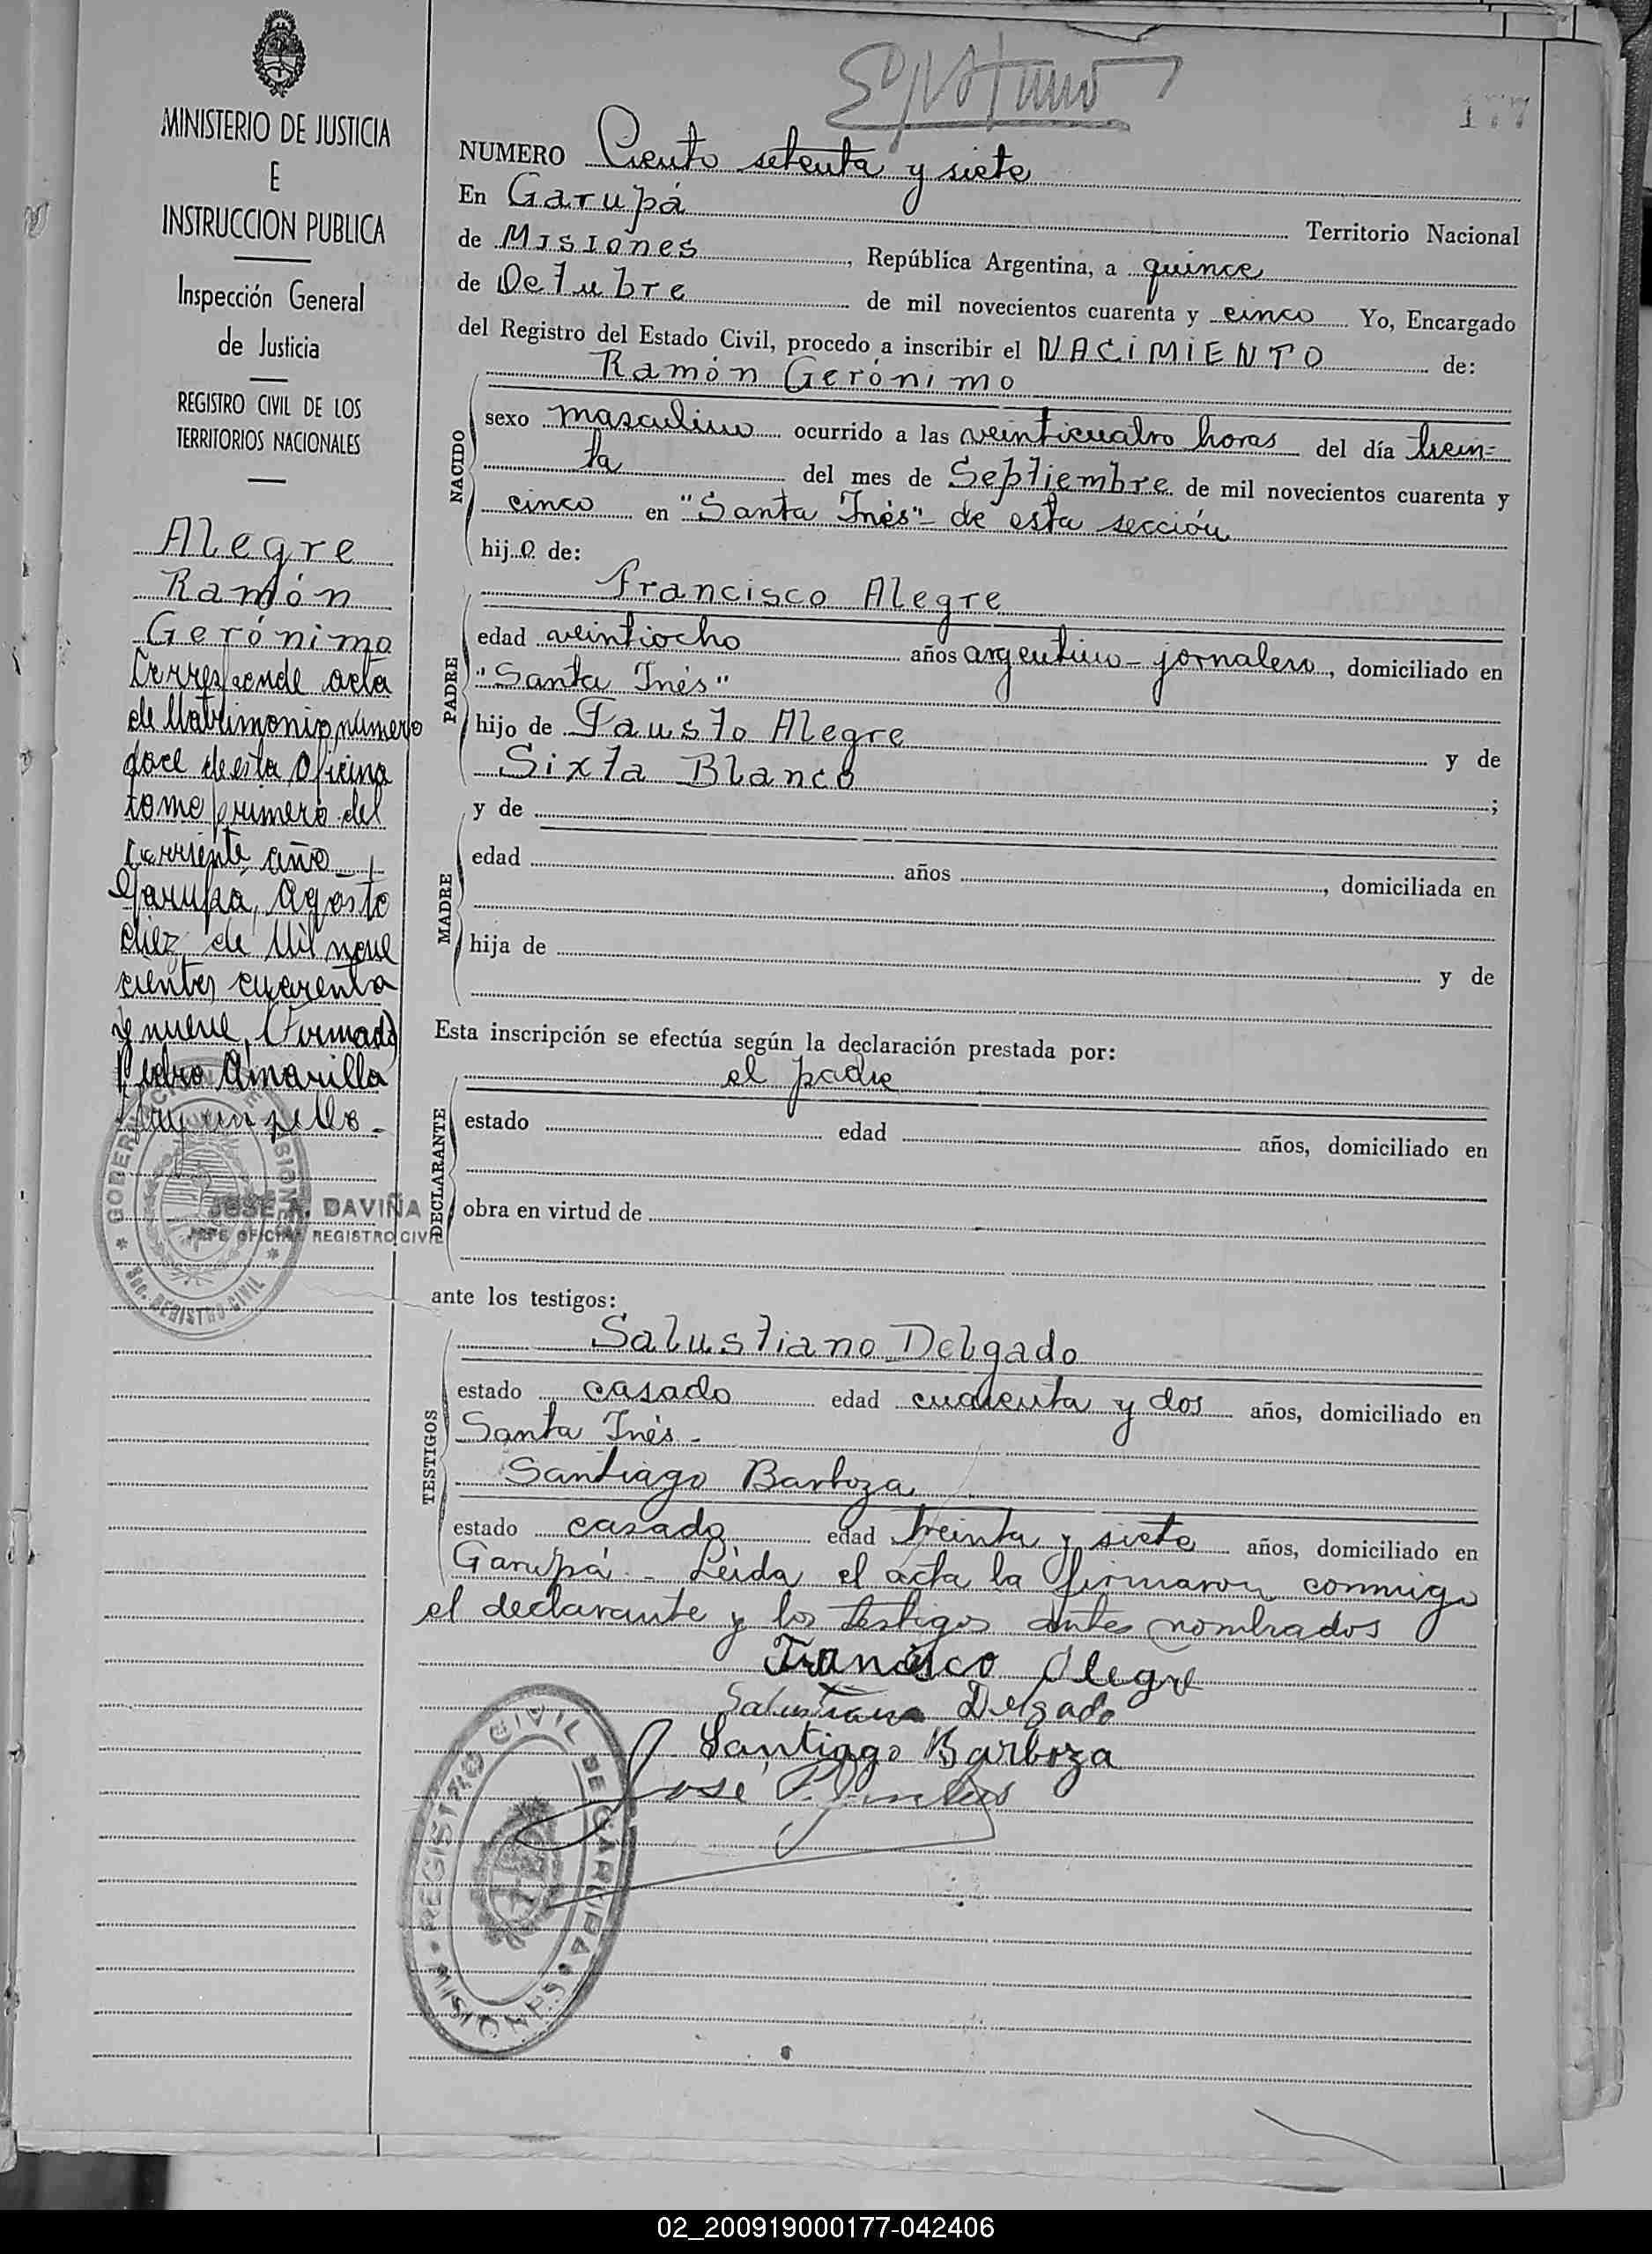 MINISTERIO DE JUSTICIA
E
INSTRUCCION PUBLICA
Inspección General
de Justicia
REGISTRO CIVIL DE LOS
TERRITORIOS NACIONALES
Alegre
Ramón
Gerónimo
Corresponde acta
de Matrimonio número
doce de esta Oficina
tomo primero del
corriente año
Garupá, Agosto
diez de Mil nove
cientos cuarenta
y nueve, (Firmado)
Pedro Amarilla
Hay un sello -
GOBERNACION DE MISIONES
SEC. REGISTRO CIVIL
JOSE A. DAVIÑA
JEFE OFICINA REGISTRO CIVIL
177
NUMERO Ciento setenta y siete
En Garupá Territorio Nacional
de Misiones, República Argentina, a quince
de Octubre de mil novecientos cuarenta y cinco Yo, Encargado
del Registro del Estado Civil, procedo a inscribir el NACIMIENTO de:
Ramón Gerónimo
NACIDO
sexo masculino ocurrido a las veinticuatro horas del día trein-
ta del mes de Septiembre de mil novecientos cuarenta y
cinco en "Santa Inés" - de esta sección
hijo de:
Francisco Alegre
PADRE
edad veintiocho años argentino - jornalero, domiciliado en
"Santa Inés"
hijo de Fausto Alegre y de
Sixta Blanco ;
y de
MADRE
edad años , domiciliada en
hija de y de
Esta inscripción se efectúa según la declaración prestada por:
el padre
DECLARANTE
estado edad años, domiciliado en
obra en virtud de
ante los testigos:
Salustiano Delgado
TESTIGOS
estado casado edad cuarenta y dos años, domiciliado en
Santa Inés -
Santiago Barboza
estado casado edad treinta y siete años, domiciliado en
Garupá - Leida el acta la firmaron conmigo
el declarante y los testigos antes nombrados
Francisco Alegre
Salustiano Delgado
Santiago Barboza
José
REGISTRO CIVIL DE GARUPA
MISIONES
02_200919000177-042406